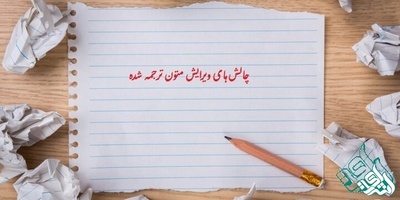 چالش‌های ویرایش متون ترجمه شده